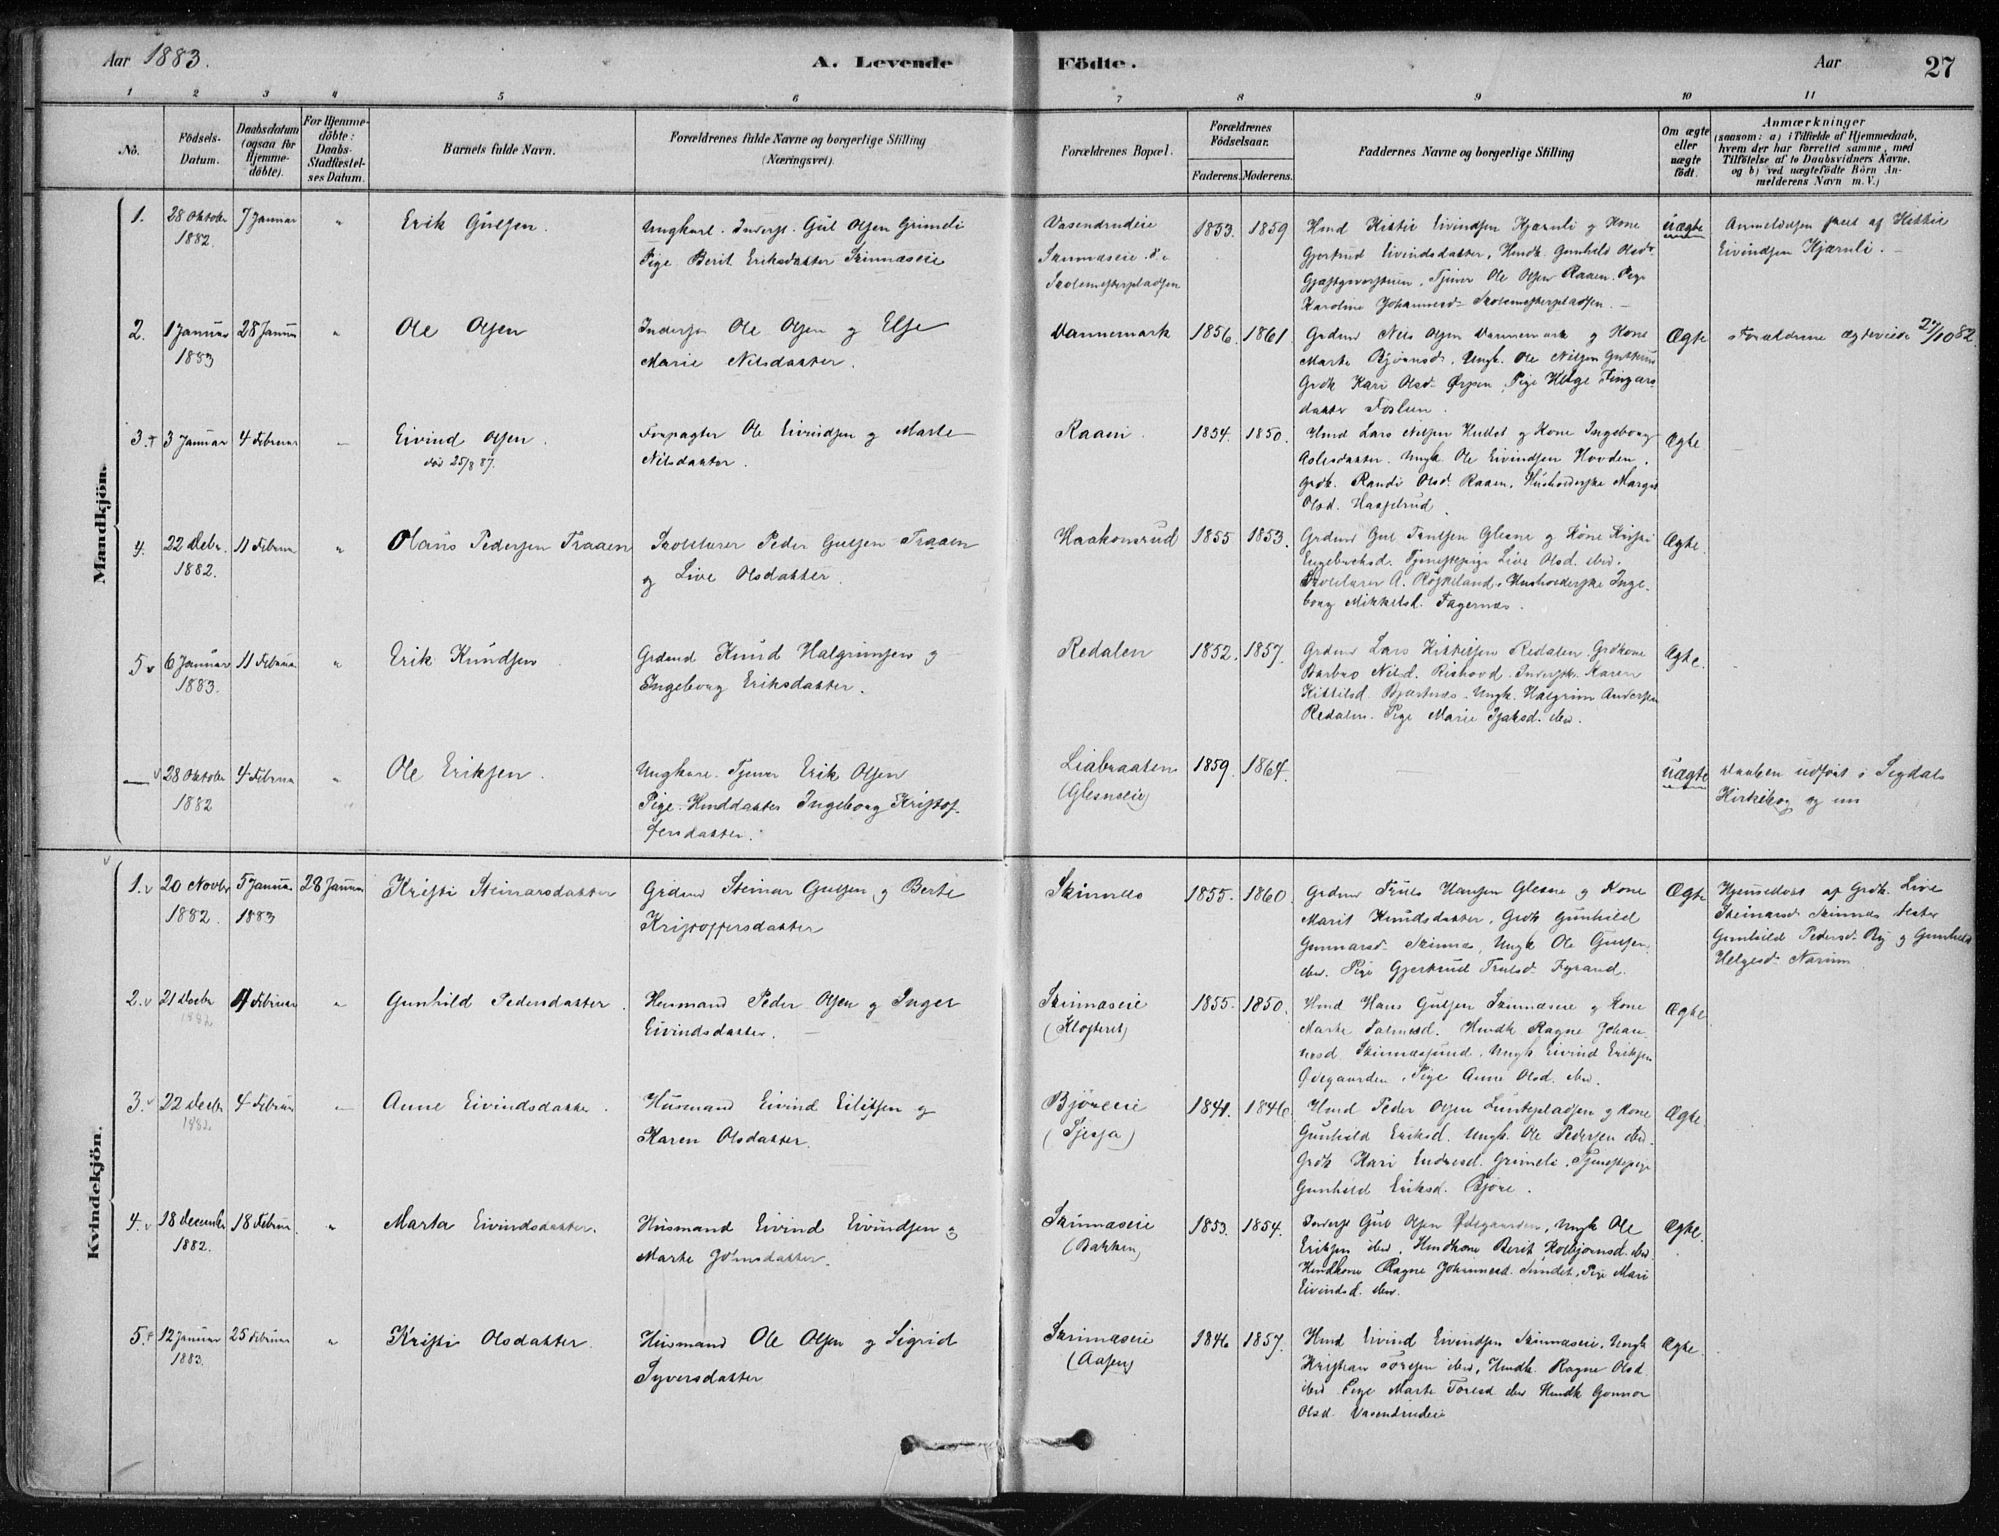 Aar 1883. A. Levende Födte. Aar 27
1 2 3 4 5 6 7 8 9 10 11
No.
Födsels-Datum.
Daabsdatum (ogsaa for Hjemme-döbte).
For Hjemme-döbte: Daabs-Stadfæstel-ses Datum.
Barnets fulde Navn.
Forældrenes fulde Navne og borgerlige Stilling (Næringsvei).
Forældrenes Bopæl.
Forældrenes Födselsaar.
Faderens. Moderens.
Faddernes Navne og borgerlige Stilling
Om ægte eller uægte födt.
Anmærkninger
(saasom: a) i Tilfælde af Hjemmedaab,
hvem der har forrettet samme, med
Tilföielse af to Daabsvidners Navne,
og b) ved uægtefödte Börn An-
melderens Navn m. V.)
Mandkjön.
1. 28 Oktober 1882. 7 Januar " Erik Gulsen.
Ungkarl. Inderst. Gul Olsen Grimeli
Pige Berit Eriksdatter Skinnæseie
Vasendrudeie
Skinnæseie
Skolemesterpladsen
1853. 1859
Hmd Kittil Eivindsen Kjærnli og Kone
Gjertrud Eivindsdatter, Hmdk. Gunhild Olsdr
Tjener Ole Olsen Raaen. Pige
Karoline Johannesd. Skolemesterpladsen.
uægte
Anmeldelsen af Kittil
Eivindsen Kjærnli.
2. 1 Januar 1883 28 Januar " Ole Olsen
Inderst Ole Olsen og Else
Marie Nilsdatter.
Vannemark 1856. 1861.
Grdmd Nils Olsen Vannemark og Kone
Marte Bjørnsdr, Ungk. Ole Nilsen
Grdk Kari Olsd. Ørpen, Pige Helge Fingars
datter Foslien.
Ægte
Forældrene ægteviede 27/10 82.
3. 3 Januar 4 Februar Eivind Olsen.
død 25/8 87.
Forpagter Ole Eivindsen og Marte
Nilsdatter.
Raaen. 1854. 1850.
Hmd Lars Nilsen Hullet og Kone Ingeborg
Aslesdatter. Ungk. Ole Eivindsen Hovden.
Grdk. Randi Olsd. Raaen, Husholderske Margit
Olsd. Haagelrud.
Ægte
4. 22 Debr. 1882. 11 Februar " Olaus Pedersen Traaen
Skolelærer Peder Gulsen Traaen
og Live Olsdatter.
Haakonsrud 1855 1853.
Grdmd Gul Trulsen Glesne og Kone Kristi
Engebretsd. Tjenestepige Live Olsd. ibid.
Skolelærer A. Røikeland. Husholderske Inge-
borg Mikkelsd. Fagernæs.
Ægte
5 v 6 Januar 1883. 11 Februar " Erik Knudsen
Grdmd Knud Halgrimsen og
Ingeborg Eriksdatter.
Redalen 1852. 1857.
Grdmd Lars Kittelsen Redalen. Grdkone
Barbro Nilsd. Rishovd. Indersk. Karen
Kittilsd. Bjertnæs. Ungk. Halgrim Andersen
Redalen. Pige Marie ibid.
Ægte
v 28 Oktober 1882 4 Februar " Ole Eriksen.
Ungkarl. Tjener Erik Olsen
Pige. Hmddatter Ingeborg Kristof-
fersdatter.
Liabraaten
(Glesneeie)
1859. 1864.
uægte
Daaben udført i Sigdals
Kirke
Kvindekjön.
1. v 20 Novbr 1882. 5 Januar 1883 28 Januar Kristi Steinarsdatter
Grdmd Steinar Gulsen og Berte
Kristoffersdatter
Skinnes 1855. 1860.
Grdmd Truls Hansen Glesne og Kone
Marit Knudsdatter, Grdk Gunhild
Gunnarsd. Skinnæs, Ungk Ole Gulsen
ibid. Pige Gjertrud Trulsd. Fyrand.
Ægte
Hjemmedøbt af Grdk. Live
Steinarsd. Skinnæs. Testes
Gunhild Pedersd. By og Gunhild
Helgesd. Narum.
2. v 21 Decbr 1882 4 Februar " Gunhild Pedersdatter
Husmand Peder Olsen og Inger
Eivindsdatter.
Skinnæseie
(Klosteret)
1855. 1850.
Hmd Hans Gulsen Skinnæseie og Kone
Marte Hmdk Ragne Johan-
nesd. Skinnæssund, Ungk Eivind Eriksen
Ødegaarden, Pige Anne Olsd. ibid.
Ægte
3. v 22 Decbr 1882 4 Februar Anne Eivindsdatter.
Husmand Eivind Eiliksen og
Karen Olsdatter.
Bjøreeie
1841. 1846.
Hmd Peder Olsen Luntepladsen og Kone
Gunhild Eriksd. Ungk. Ole Pedersen ibid.
Grdk Kari Endresd. Grimeli, Tjenestepige
Gunhild Eriksd. Bjøre.
Ægte.
4. v 18 December 1882. 18 Februar " Marta Eivindsdatter.
Husmand Eivind Eivindsen og
Marte Johnsdatter.
Skinnæseie
(Bakken)
1853. 1854.
Inderst Gul Olsen Ødegaarden, Ungk Ole
Eriksen ibid, Hmdkone Berit Kolbjørnsd. ibid.
Hmdkone Ragne Johannesd. Sundet, Pige Mari
Eivindsd. ibid.
Ægte.
5. 12 Januar 1883. 25 Februar " Kristi Olsdatter
Husmand Ole Olsen og Sigrid
Syversdatter
Skinnæseie
(Aasen)
1846. 1857.
Hmd Eivind Eivindsen Skinnæseie. Ungk
Kristian Toresen ibid, Hmdk. Ragne Olsd
ibid Pige Marte Toresd ibid Hmdk Gonnor
Olsd. Vasendrudeie
Ægte.